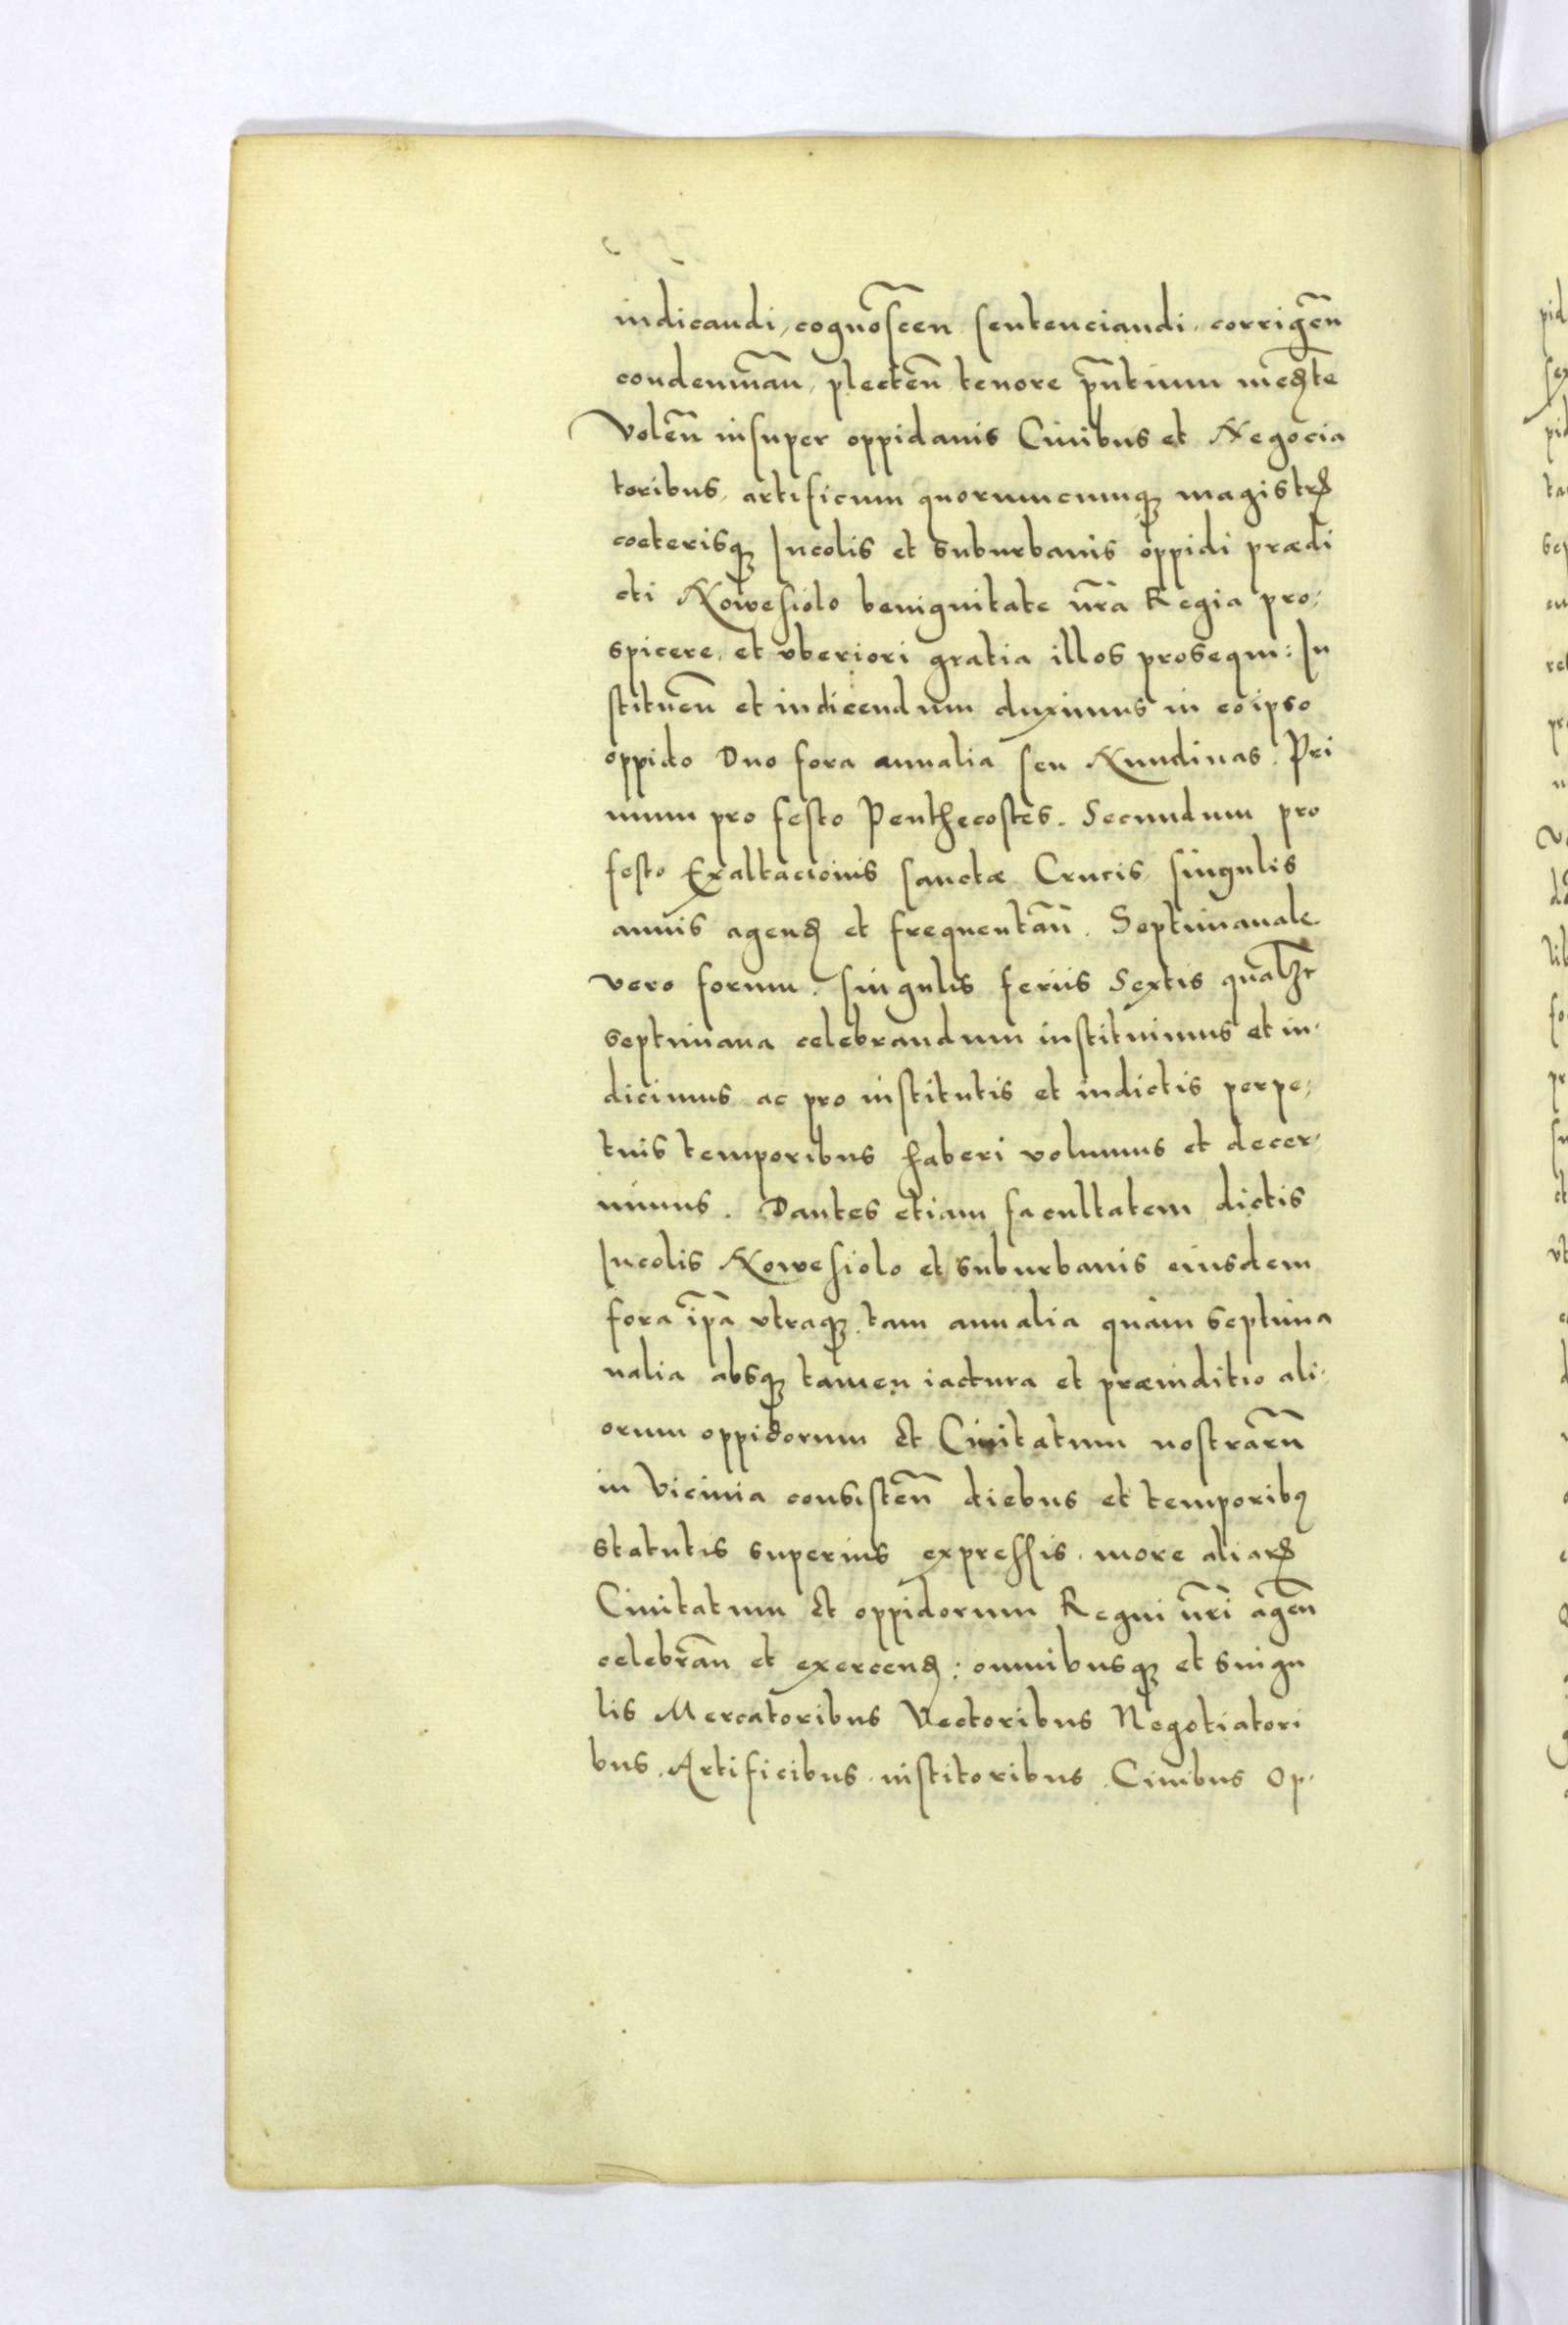 iudicandi, cognoscen̄ sentenciandi, corrigen̄
condemnan̄, plecten̄ tenore pn̄tium med̄te
Volen̄ insuper oppidanis Ciuibus et Negocia
toribus, artificum quorumcumqꝫ magistrꝝ
coeterisqꝫ Incolis et suburbanis oppidi prædi
cti Nowesiolo benignitate nr̄a Regia pro,
spicere, et vberiori gratia illos prosequi: In
stituen̄ et indicendum duximus in eo ipso
oppido Duo fora annalia seu Nundinas. Pri
mum pro festo Penthecostes. Secundum pro
festo Exaltacionis sanctæ Crucis, singulis
annis agenꝺ et frequentan̄. Septimanale
vero forum. singulis feriis Sextis qualꝫt
septimana celebrandum instituimus et in,
dicimus ac pro institutis et indictis perpe,
tuis temporibus haberi volumus et decer,
nimus. Dantes etiam facultatem dictis
Incolis Nowesiolo et suburbanis eiusdem
fora ip̄a vtraqꝫ tam annalia quàm septima
nalia absqꝫ tamen iactura et præiuditio ali,
orum oppidorum et Ciuitatum nostrarū
in vicinia consisten̄ diebus et temporibꝰ
statutis superius expressis. more aliarꝝ
Ciuitatum et oppidorum Regni nr̄i agen̄
celebran̄ et exercenꝺ: omnibusqꝫ et singu
lis Mercatoribus Vectoribus Negotiatori
bus. Artificibus. institoribus. Ciuibus Op,